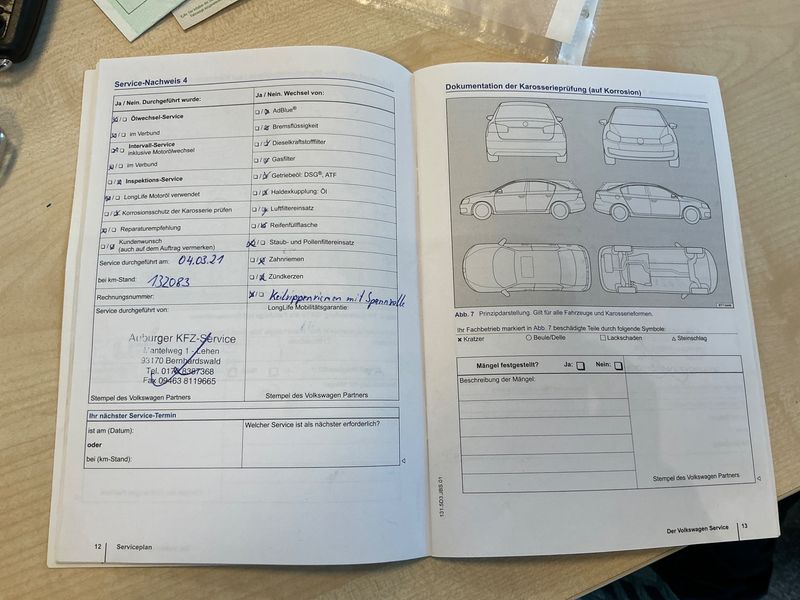 Service-Nachweis 4
Ja / Nein. Durchgeführt wurde:
Ölwechsel-Service
im Verbund
Intervall-Service
inklusive Motorölwechsel
im Verbund
Inspektions-Service
LongLife Motoröl verwendet
Korrosionsschutz der Karosserie prüfen
Reparaturempfehlung
Kundenwunsch
(auch auf dem Auftrag vermerken)
Service durchgeführt am: 04.03.21
bei km-Stand: 132083
Rechnungsnummer:
Service durchgeführt von:
Auburger KFZ-Service
Mantelweg 1 - Lehen
93170 Bernhardswald
Fax 09463 8119665
Stempel des Volkswagen Partners
Ja / Nein. Wechsel von:
AdBlue®
Bremsflüssigkeit
Dieselkraftstofffilter
Gasfilter
Getriebeöl: DSG®, ATF
Haldexkupplung: Öl
Luftfiltereinsatz
Reifenfüllflasche
Staub- und Pollenfiltereinsatz
Zahnriemen
Zündkerzen
Keilrippenriemen mit Spannrolle
LongLife Mobilitätsgarantie:
Stempel des Volkswagen Partners
Ihr nächster Service-Termin
ist am (Datum):
oder
bei (km-Stand):
Welcher Service ist als nächster erforderlich?
12
Serviceplan
Dokumentation der Karosserieprüfung (auf Korrosion)
Abb. 7 Prinzipdarstellung. Gilt für alle Fahrzeuge und Karosserieformen.
Ihr Fachbetrieb markiert in Abb. 7 beschädigte Teile durch folgende Symbole:
Kratzer
Beule/Delle
Lackschaden
Steinschlag
Mängel festgestellt? Ja: Nein:
Beschreibung der Mängel:
Stempel des Volkswagen Partners
131.5D3.JBS.01
Der Volkswagen Service
13